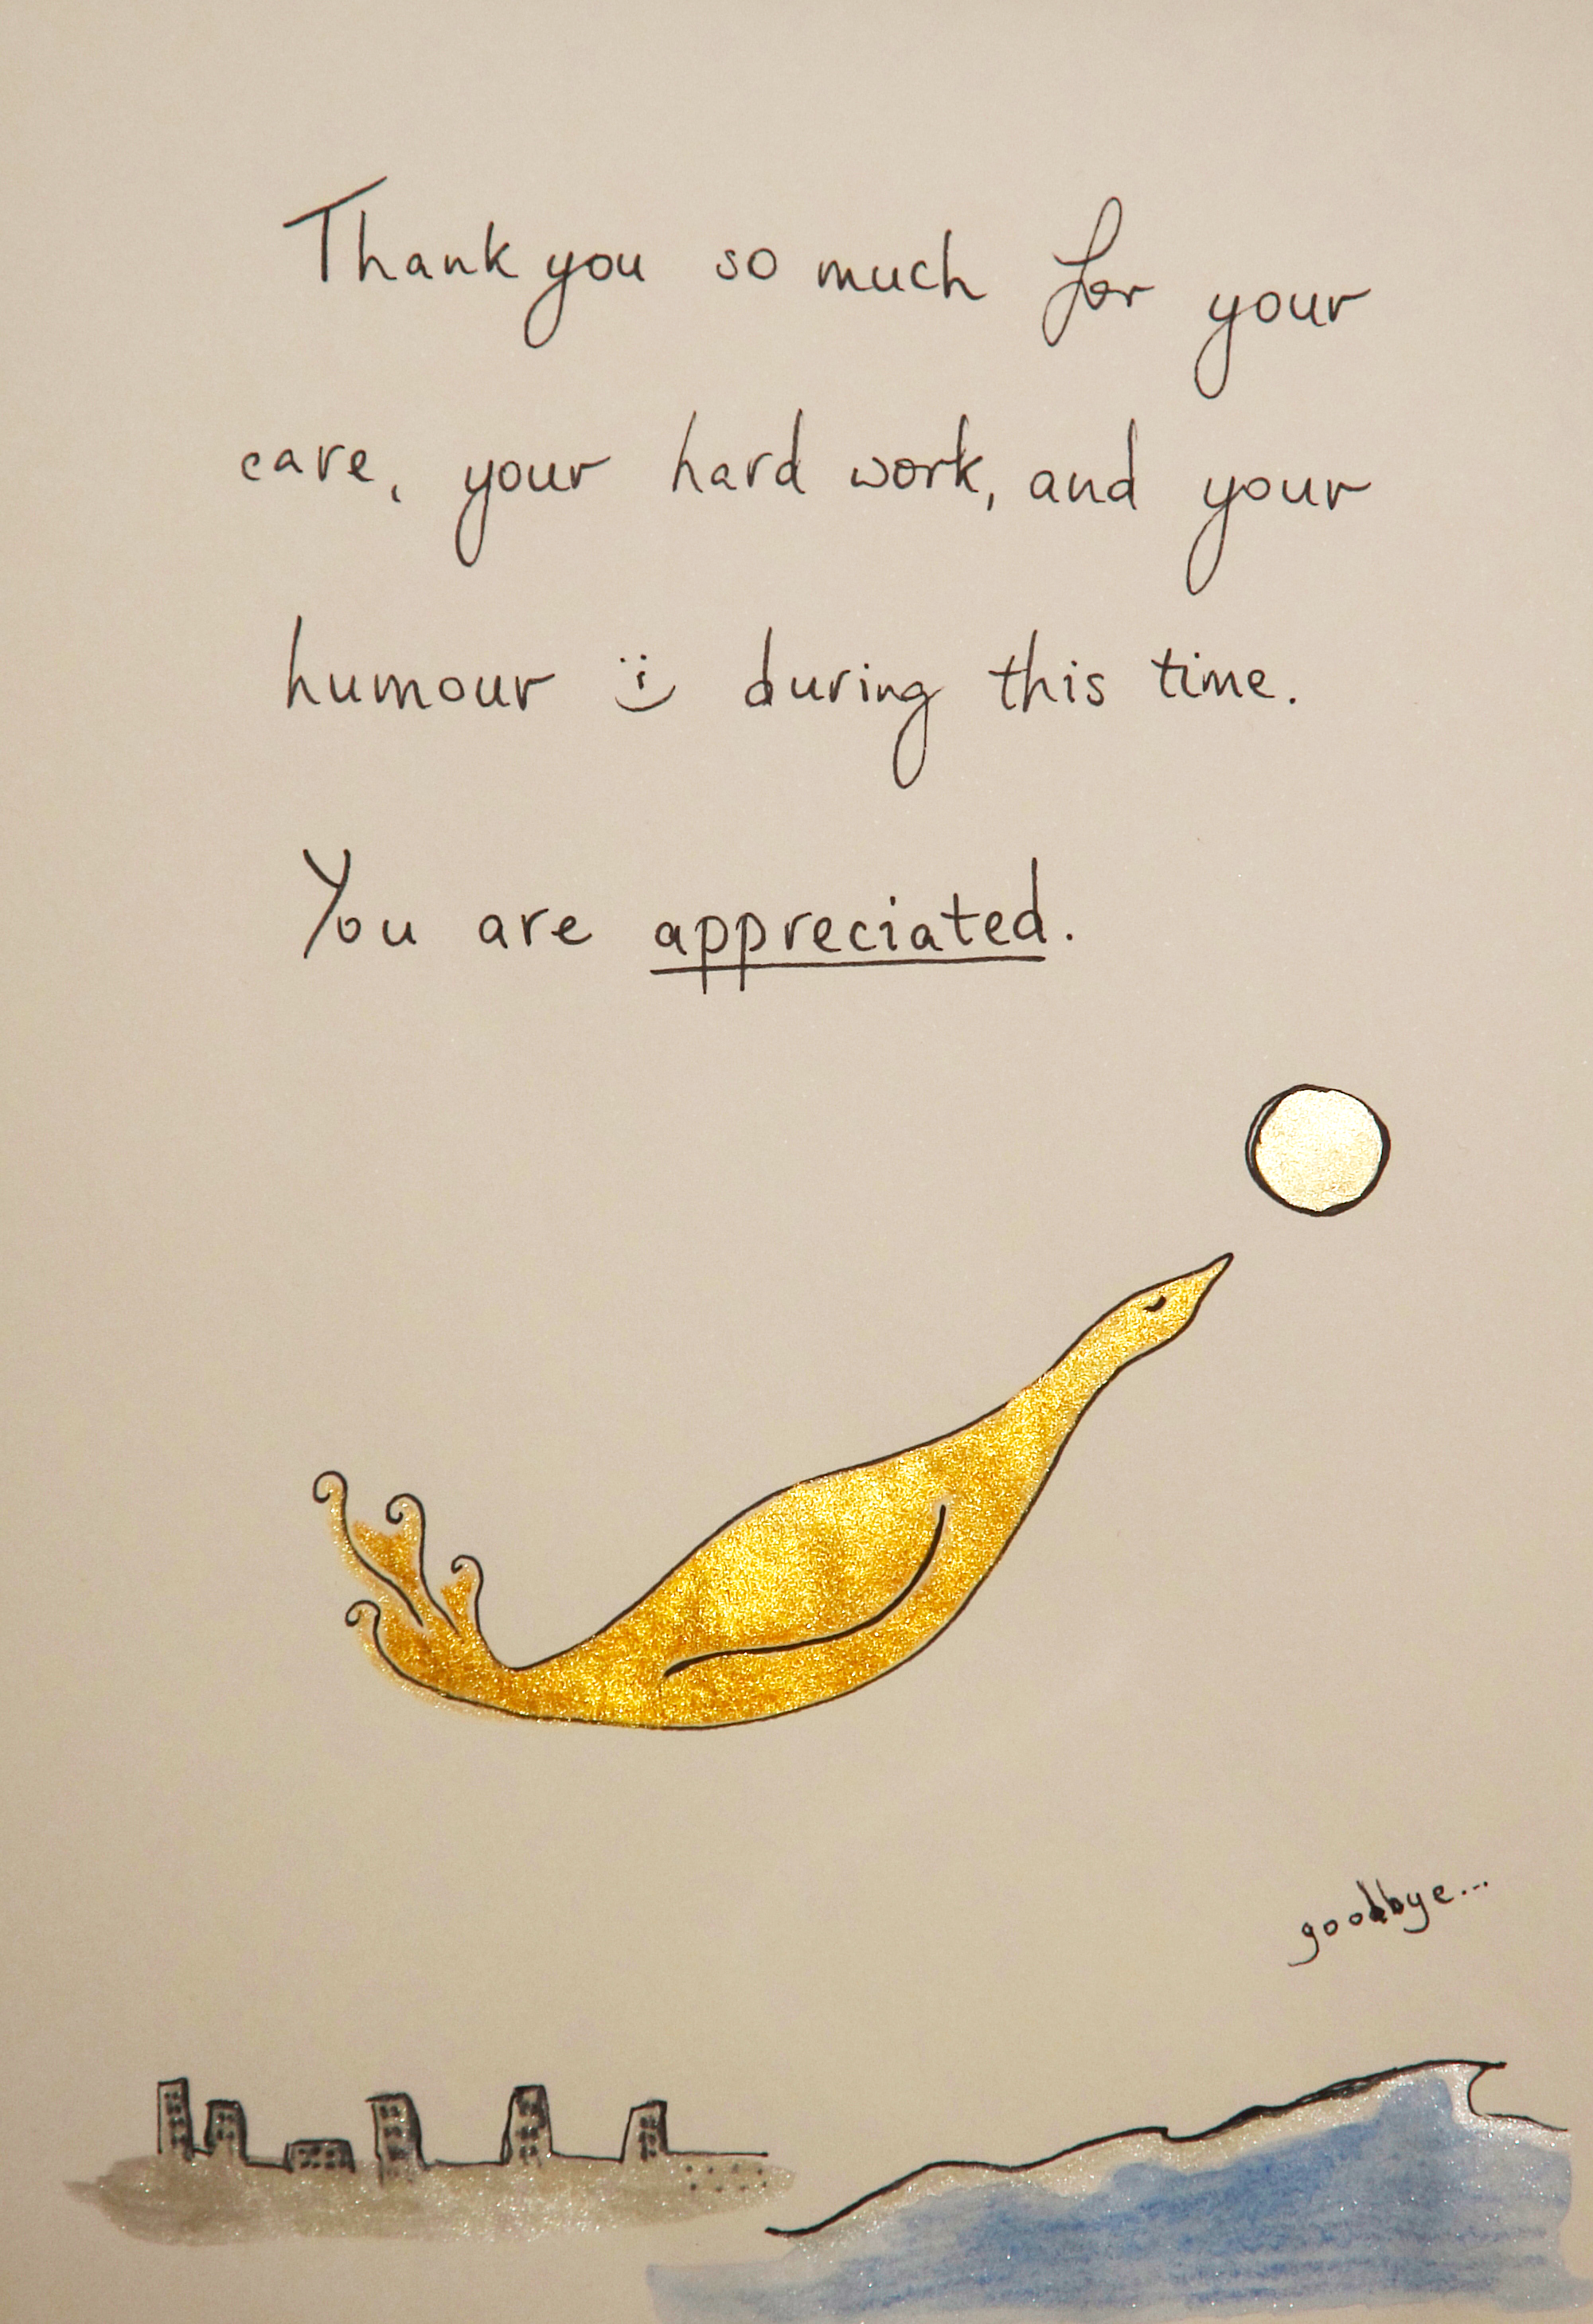 Thank you so much for your
care, your hard work, and your
humour :) during this time.
You are appreciated.
goodbye...